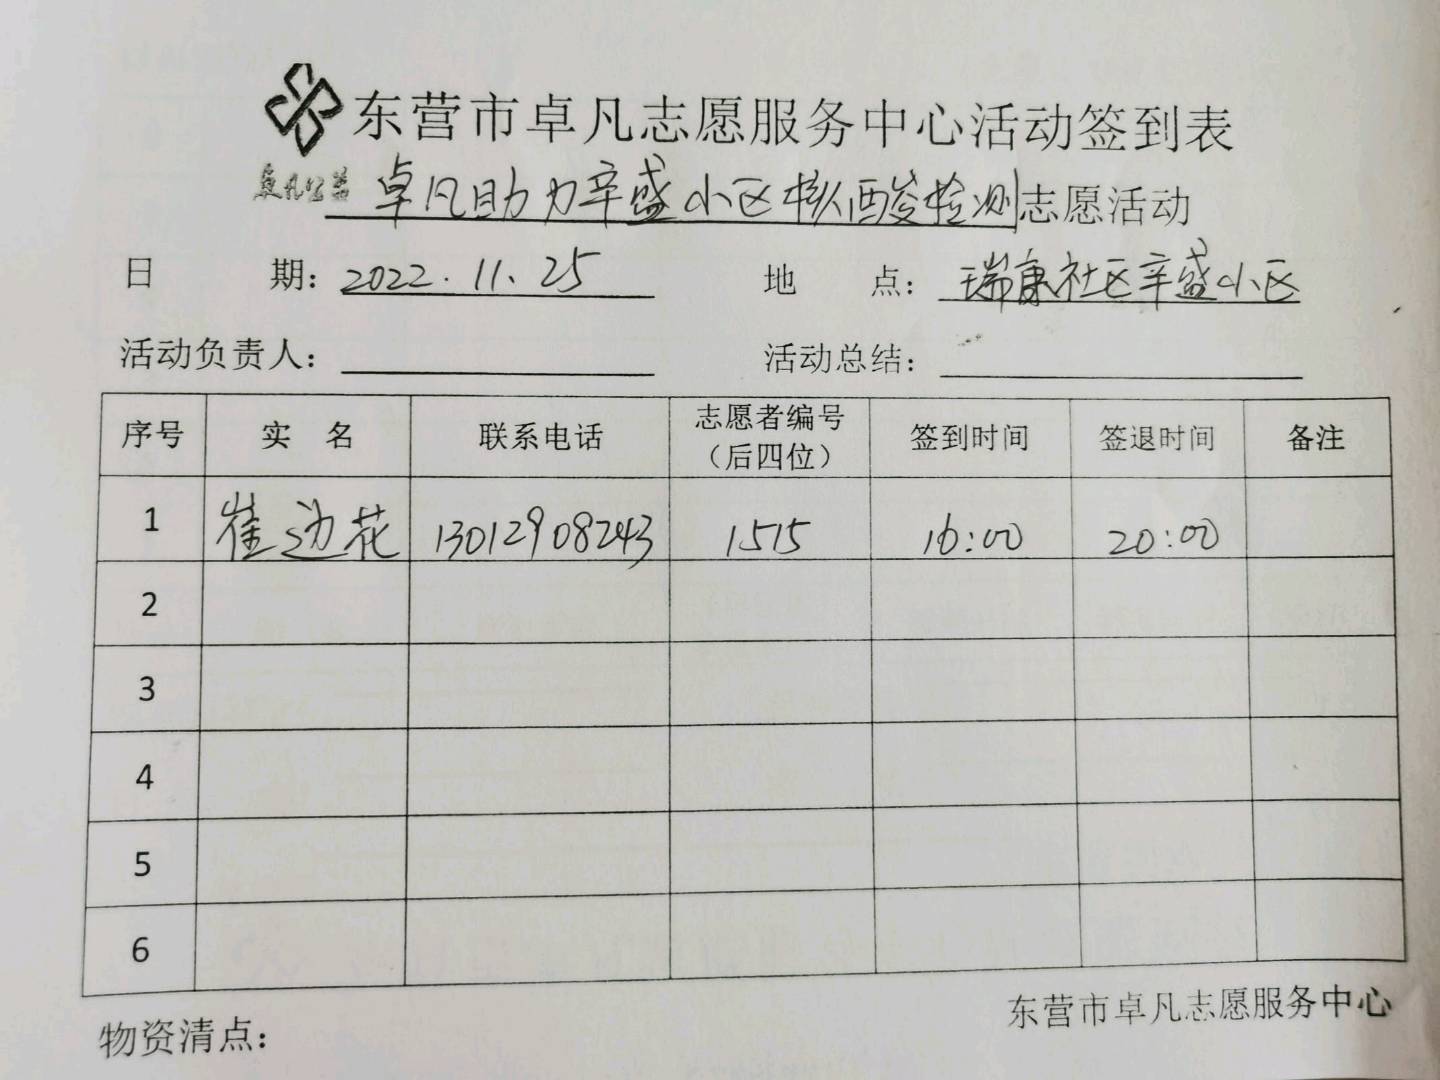 东营市卓凡志愿服务中心活动签到表
卓凡公益
卓凡助力辛盛小区核酸检测志愿活动
日 期：2022.11.25 地 点：瑞康社区辛盛小区
活动负责人： 活动总结：
序号 实 名 联系电话 志愿者编号（后四位） 签到时间 签退时间 备注
1 崔边花 13012908243 1515 16:00 20:00
2
3
4
5
6
东营市卓凡志愿服务中心
物资清点：